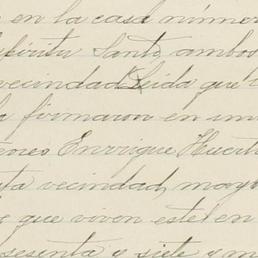 en la casa número
Espíritu Santo ambos
vecindad Leida que
la firmaron en un
Enrrique Huert
ta vecindad, may
que viven este en
sesenta y siete y m